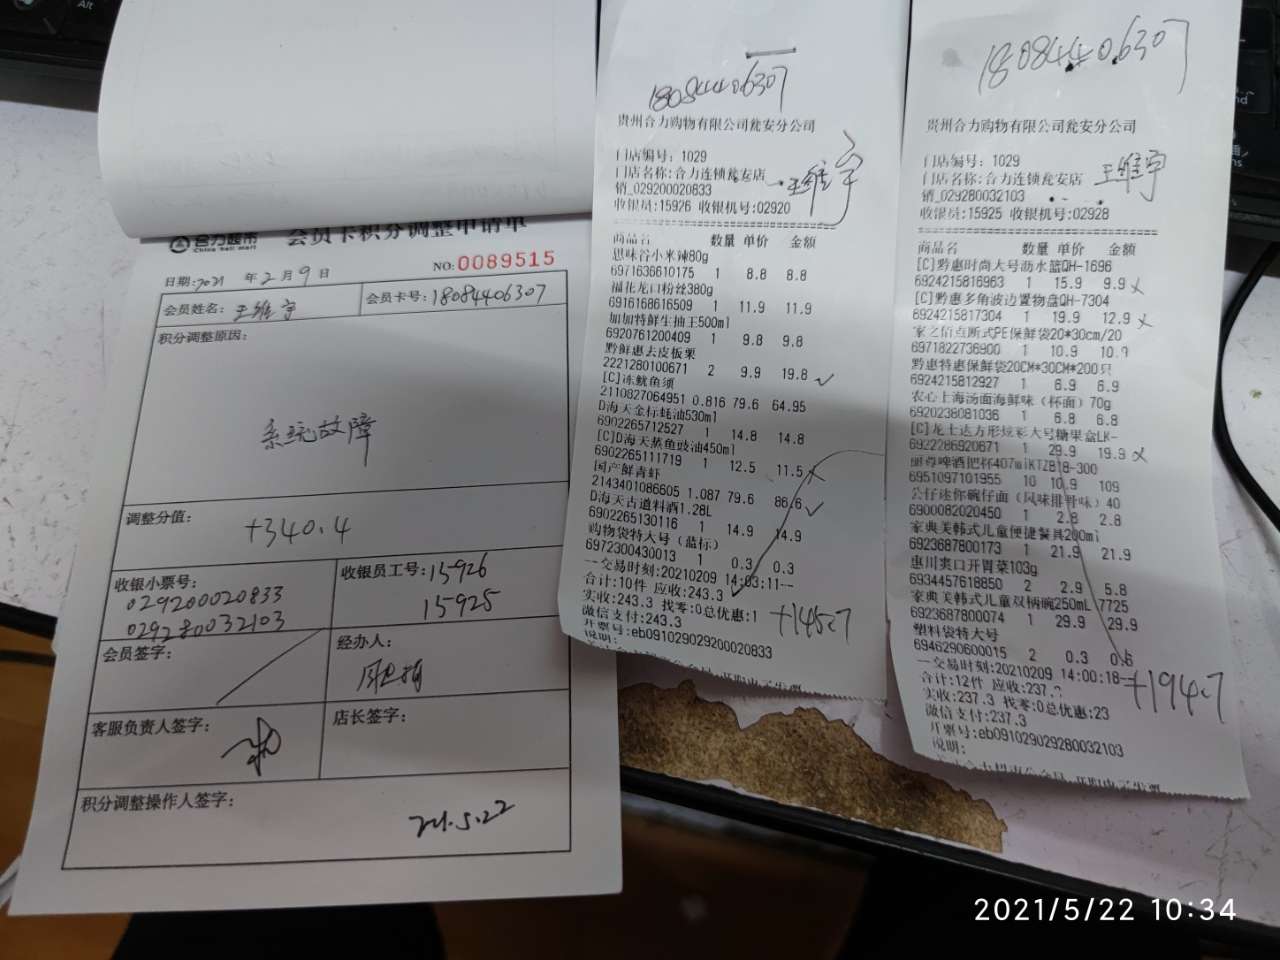 合力超市
China heli mart
会员卡积分调整申请单
日期:2021 年 2 月 9 日
NO:0089515
会员姓名: 王维宇
会员卡号:18084406307
积分调整原因:
系统故障
调整分值: +340.4
收银小票号:
029200020833
029280032103
收银员工号:15926
15925
会员签字:
经办人:
客服负责人签字:
店长签字:
积分调整操作人签字:
21.5.22
18084406307
贵州合力购物有限公司瓮安分公司
门店编号: 1029
门店名称:合力连锁瓮安店
王维宇
销_029200020833
收银员:15926 收银机号:02920
商品名 数量 单价 金额
思味谷小米辣80g
6971636610175 1 8.8 8.8
福花龙口粉丝380g
6916168616509 1 11.9 11.9
加加特鲜生抽王500ml
6920761200409 1 9.8 9.8
黔鲜惠去皮板栗
2221280100671 2 9.9 19.8
[C]冻鱿鱼须
2110827064951 0.816 79.6 64.95
D海天金标蚝油530ml
6902265712527 1 14.8 14.8
[C]D海天蒸鱼豉油450ml
6902265111719 1 12.5 11.5
国产鲜青虾
2143401086605 1.087 79.6 86.6
D海天古道料酒1.28L
6902265130116 1 14.9 14.9
购物袋特大号（蓝标）
6972300430013 1 0.3 0.3
--交易时刻:20210209 14:03:11--
合计:10件 应收:243.3
实收:243.3 找零:0总优惠:1
微信支付:243.3
+145.7
开票号:eb091029029200020833
说明:
18084406307
贵州合力购物有限公司瓮安分公司
门店编号: 1029
门店名称:合力连锁瓮安店
王维宇
销_029280032103
收银员:15925 收银机号:02928
商品名 数量 单价 金额
[C]黔惠时尚大号沥水篮QH-1696
6924215816963 1 15.9 9.9
[C]黔惠多角波边置物盘QH-7304
6924215817304 1 19.9 12.9
家之佰点断式PE保鲜袋20*30cm/20
6971822736900 1 10.9 10.9
黔惠特惠保鲜袋20CM*30CM*200只
6924215812927 1 6.9 6.9
农心上海汤面海鲜味（杯面）70g
6920238081036 1 6.8 6.8
[C]龙士达方形炫彩大号糖果盒LK-
6922286920871 1 29.9 19.9
丽尊啤酒把杯407mlKTZB18-300
6951097101955 10 10.9 109
公仔迷你碗仔面（风味排骨味）40
6900082020450 1 2.8 2.8
家典美韩式儿童便捷餐具200ml
6923687800173 1 21.9 21.9
惠川爽口开胃菜103g
6934457618850 2 2.9 5.8
家典美韩式儿童双柄碗250mL 7725
6923687800074 1 29.9 29.9
塑料袋特大号
6946290600015 2 0.3 0.6
--交易时刻:20210209 14:00:18--
合计:12件 应收:237.?
+194.7
实收:237.3 找零:0总优惠:23
微信支付:237.3
开票号:eb091029029280032103
说明:
2021/5/22 10:34